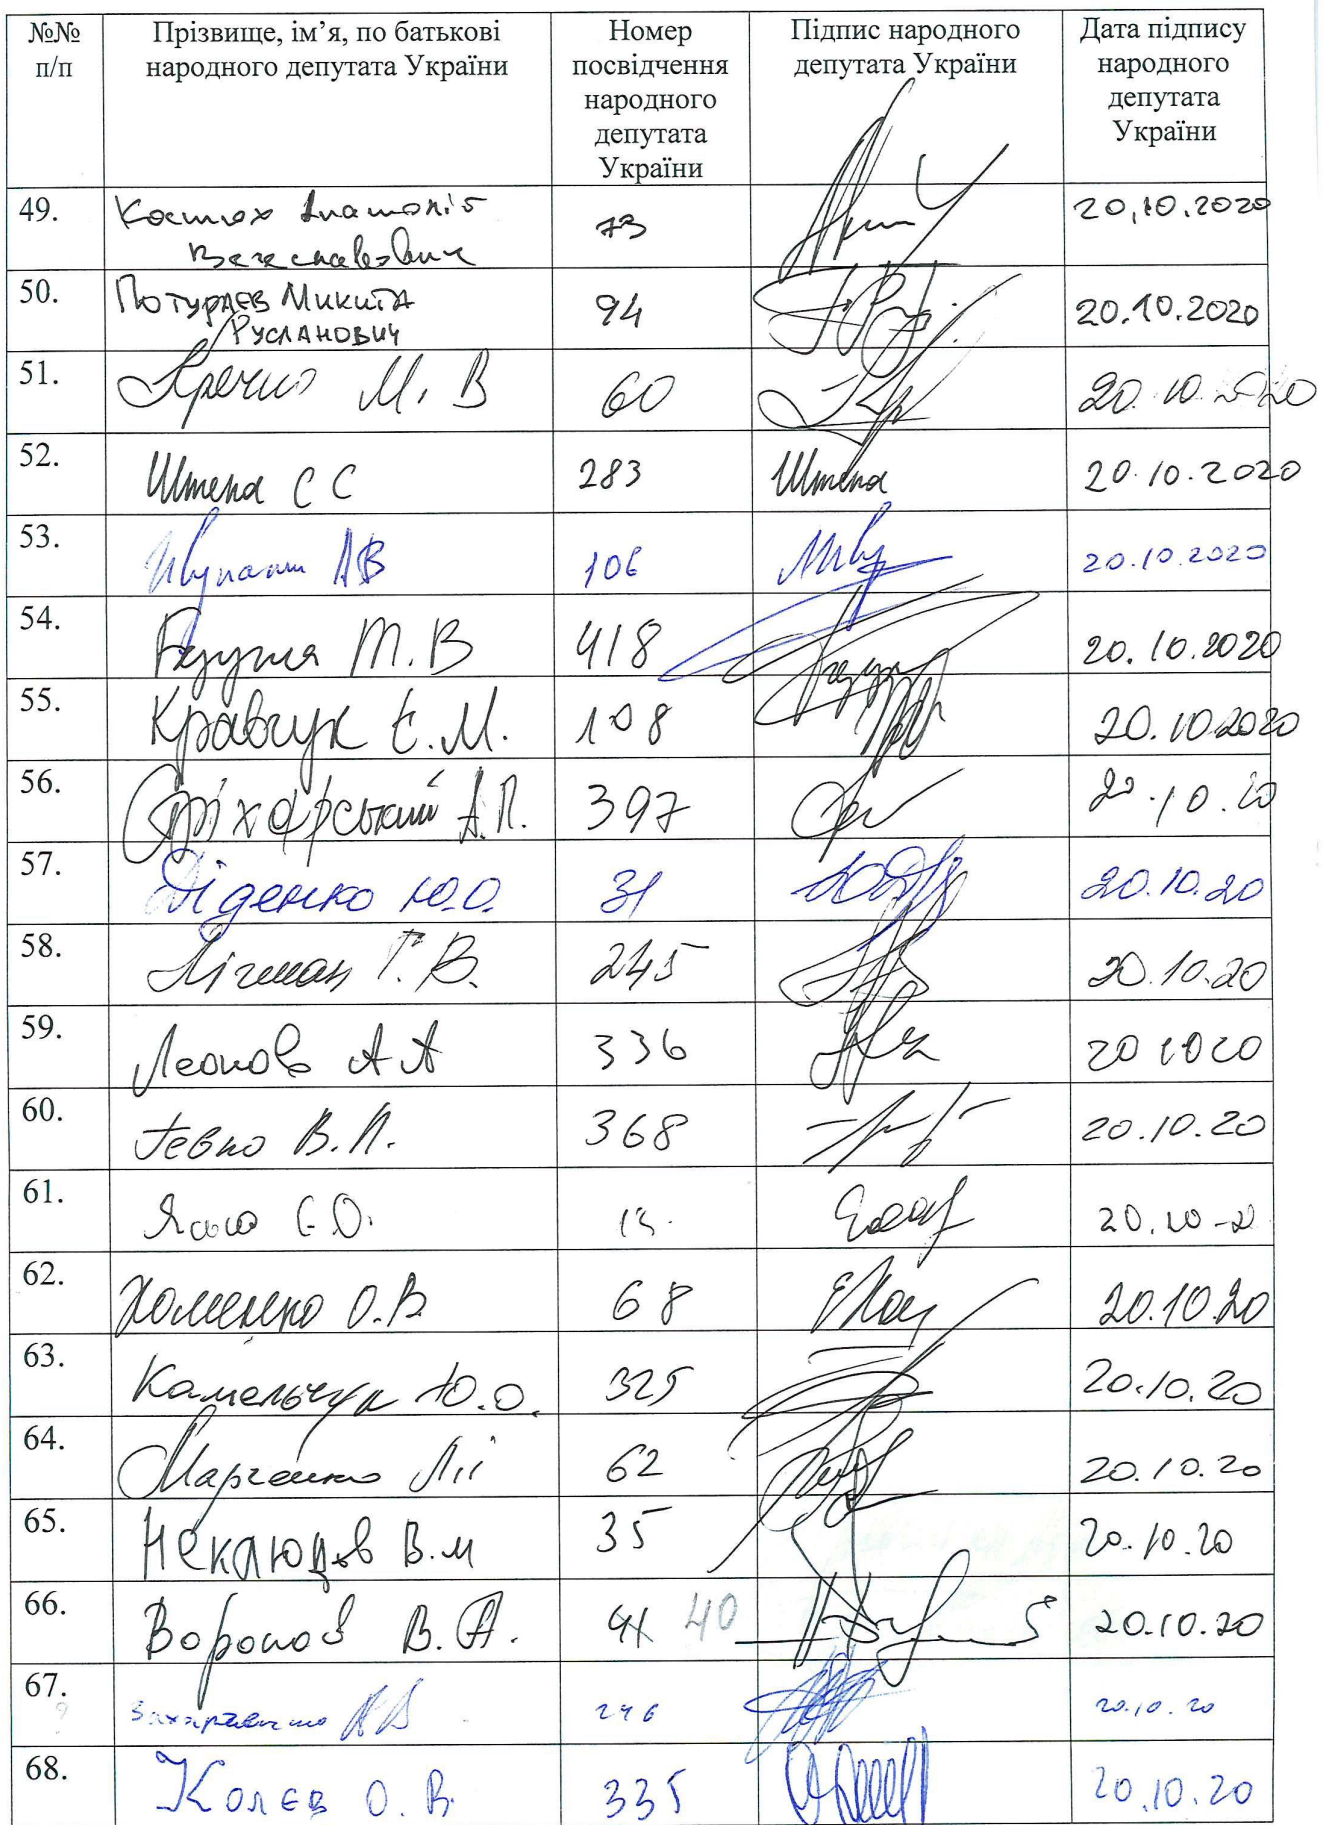 №№ п/п
Прізвище, ім’я, по батькові народного депутата України
Номер посвідчення народного депутата України
Підпис народного депутата України
Дата підпису народного депутата України
49. Костюх Анатолій Вячеславович 73 20,10.2020
50. Потураєв Микита Русланович 94 20.10.2020
51. М. В 60 20.10.2020
52. Штепа С С 283 Штепа 20.10.2020
53. А В 106 20.10.2020
54. М. В 418 20.10.2020
55. Кравчук Є. М. 108 20.10.2020
56. А. П. 397 20.10.20
57. Діденко Ю.О. 31 20.10.20
58. Г. В. 245 20.10.20
59. Леонов А А 336 20 10 20
60. Гевко В. Л. 368 20.10.20
61. Є. О. 20.10-20
62. Хоменко О. В 68 20.10.20
63. Камельчук Ю. О. 325 20.10.20
64. Марченко Л і 62 20.10.20
65. Неклюдов В. м 35 20.10.20
66. Воронов В. А. 40 20.10.20
67. А В 246 20.10.20
68. Колєв О. В. 335 20.10.20